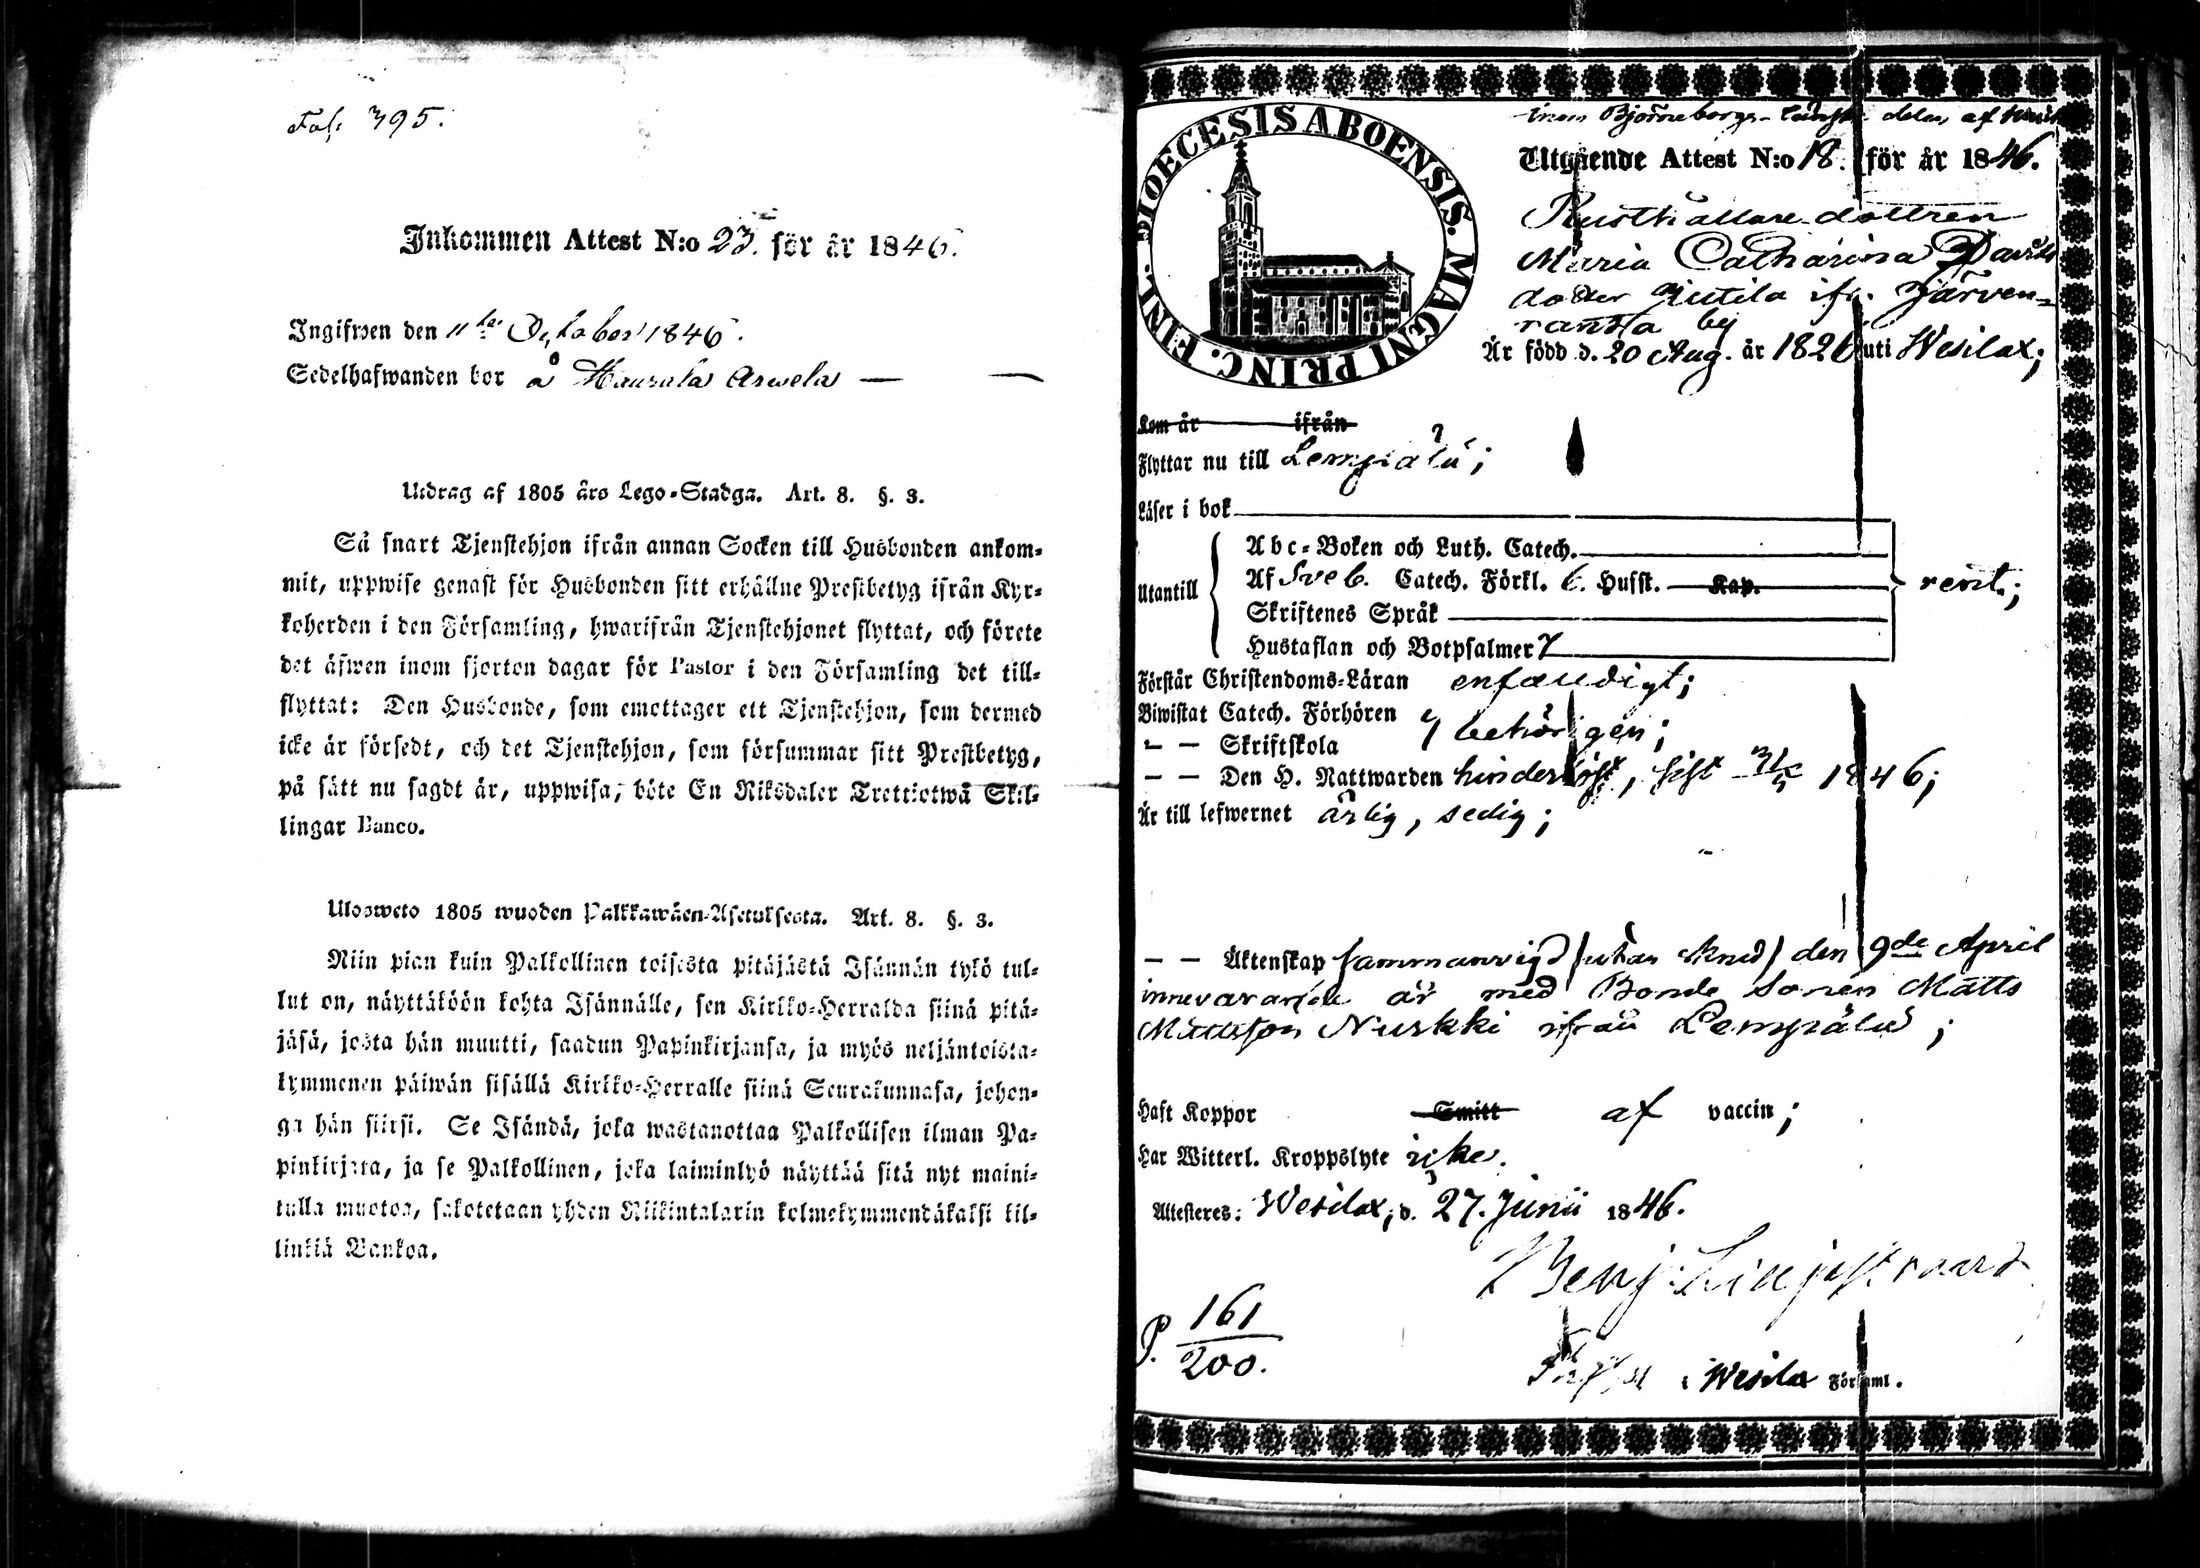 Fol. 395.
Inkommen Attest N:o 23. för år 1846.
Ingifwen den 11te October 1846.
Sedelhafwanden bor å Haurala Arwela —
Utdrag af 1805 års Lego-Stadga. Art. 8. §. 3.
Så snart Tjenstehjon ifrån annan Socken till Husbonden ankom-
mit, uppwise genast för Husbonden sitt erhållne Prestbetyg ifrån Kyr-
koherden i den Församling, hwarifrån Tjenstehjonet flyttat, och förete
det äfwen inom fjorton dagar för Pastor i den Församling det till-
flyttat: Den Husbonde, som emottager ett Tjenstehjon, som dermed
icke är försedt, och det Tjenstehjon, som försummar sitt Prestbetyg,
på sätt nu sagdt är, uppwisa, böte En Riksdaler Trettiotwå Skil-
lingar Banco.
Ulosweto 1805 wuoden Palkkawäen-Asetuksesta. Art. 8. §. 3.
Niin pian kuin Palkollinen toisesta pitäjästä Isännän tykö tul-
lut on, näyttäköön kohta Isännälle, sen Kirkko-Herralda siinä pitä-
jäsä, josta hän muutti, saadun Papinkirjansa, ja myös neljäntoista-
kymmenen päiwän sisällä Kirkko-Herralle siinä Seurakunnasa, johon-
ga hän siirsi. Se Isändä, joka wastanottaa Palkollisen ilman Pa-
pinkirjata, ja se Palkollinen, joka laiminlyö näyttää sitä nyt maini-
tulla muotoa, sakotetaan yhden Riikintalarin kolmekymmendäkaksi kil-
linkiä Bankoa.
DIOECESIS ABOENSIS. MAGNI PRINC. FINL.
inom Björneborgs Länsk. delen af
Utgående Attest N:o 18. för år 1846.
Rusthållare dottren
Maria Catharina Davids
dotter Jutila ifr. Järven-
ranta by
Är född d. 20 Aug. år 1826 uti Wesilax;
Kom år ifrån
Flyttar nu till Lempiälä;
Läser i bok
Abc-Boken och Luth. Catech.
Utantill Af Sveb. Catech. Förkl. 6. Husst. Kap. rent.;
Skriftenes Språk
Hustaflan och Botpsalmer 7
Förstår Christendoms-Läran enfaldigt;
Biwistat Catech. Förhören
— — Skriftskola behörigen;
— — Den H. Nattwarden hinderlöst, sist 1846;
Är till lefwernet ärlig, sedig;
— — Äktenskap sammanvigd (utan Mund) den 9de April
innevarande år med Bonde Sonen Matts
Mattsson Nurkki ifrån Lempiälä;
Haft Koppor Smitt af vaccin;
Har Witterl. Kroppslyte icke.
Attesteres: Wesilax, d. 27. Junii 1846.
Benj. Liljestrand
P. 161
200.
i Wesilax Församl.